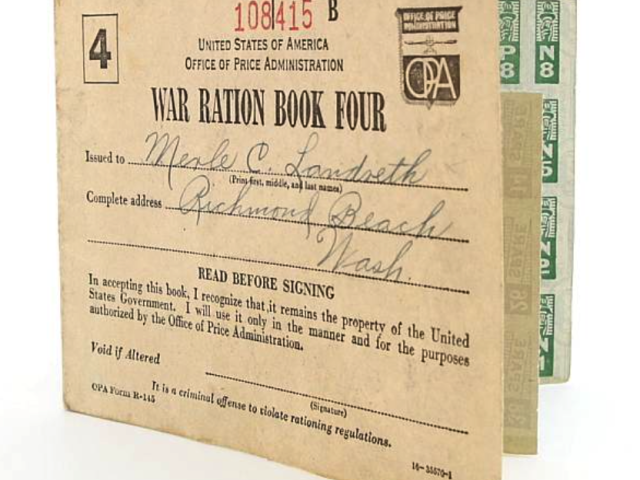 108415 B
4
UNITED STATES OF AMERICA
OFFICE OF PRICE ADMINISTRATION
OFFICE OF PRICE
ADMINISTRATION
OPA
WAR RATION BOOK FOUR
Issued to Merle C. Landreth
(Print first, middle, and last names)
Complete address Richmond Beach
Wash.
READ BEFORE SIGNING
In accepting this book, I recognize that it remains the property of the United
States Government. I will use it only in the manner and for the purposes
authorized by the Office of Price Administration.
Void if Altered
(Signature)
OPA Form R-145
It is a criminal offense to violate rationing regulations.
16-35570-1
P
8
N
8
SPARE
SPARE
SPARE